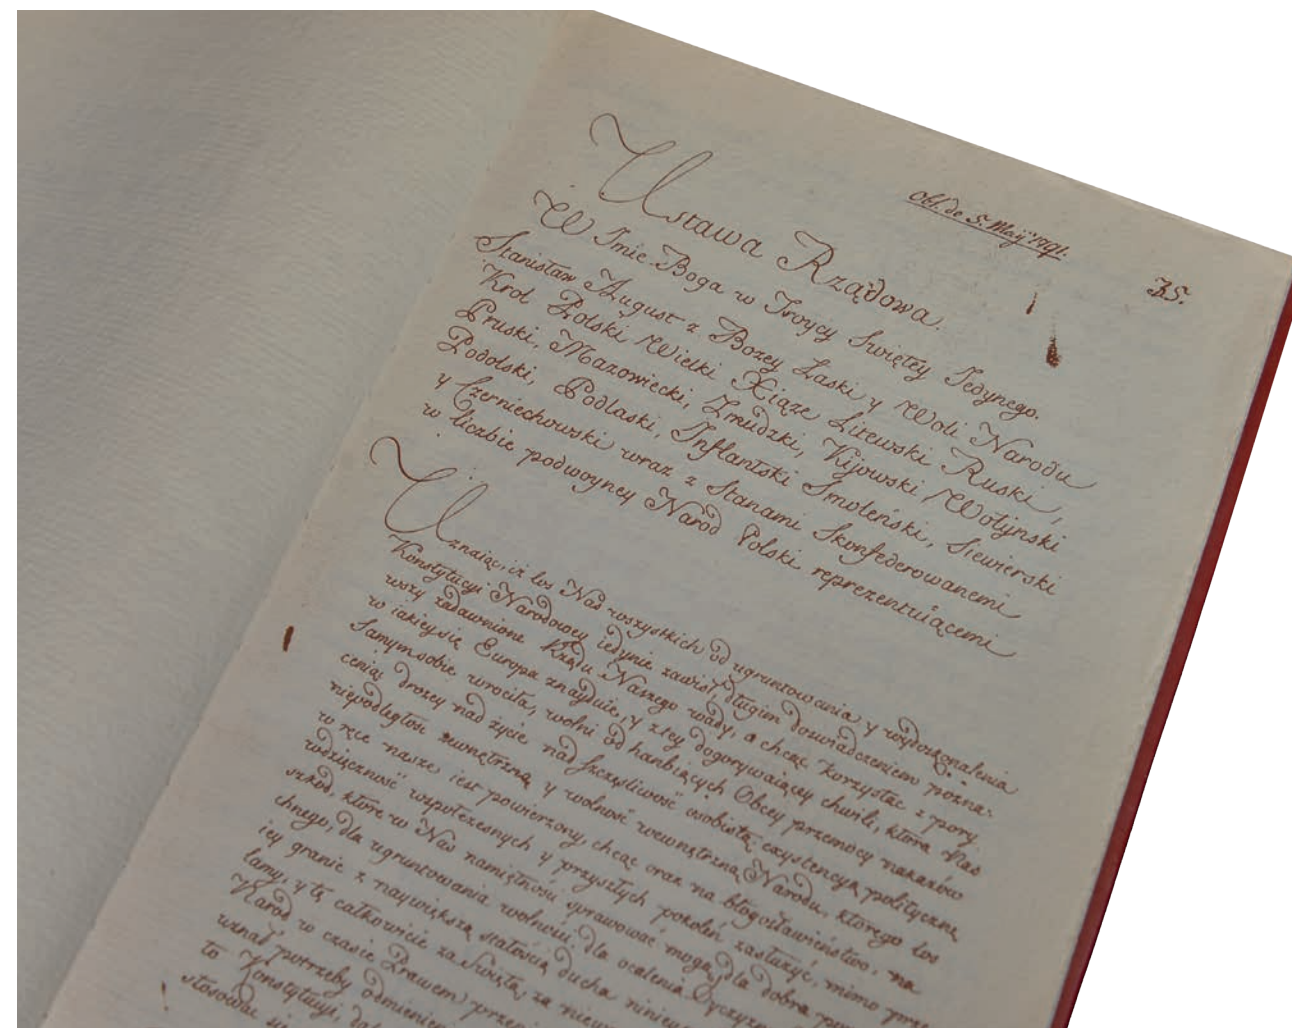 Obl. de 5. Maÿ 1791.
35.
Ustawa Rządowa.
W Imie Boga w Troycy Swiętey Jedynego.
Stanisław August z Bożey Łaski y Woli Narodu
Krol Polski Wielki Xiąże Litewski Ruski,
Pruski, Mazowiecki, Zmudzki, Kijowski, Wołynski
Podolski, Podlaski, Inflantski Smoleński, Siewierski
y Czerniechowski wraz z Stanami Skonfederowanemi
w liczbie podwoyney Narod Polski reprezentuiącemi
Uznaiąc, iż los Nas wszystkich od ugruntowania y wydoskonalenia
Konstytucyi Narodowey iedynie zawisł, długim doswiadczeniem pozna-
wszy zadawnione Rządu Naszego wady, a chcąc korzystać z pory
w iakiey się Europa znayduie, y z tey dogorywaiącey chwili, która Nas
samym sobie wrociła, wolni od hanbiących Obcey przemocy nakazów
ceniąc drozey nad życie nad szczęsliwość osobistą, exystencyą polityczną
niepodległosc zewnętrzną y wolność wewnętrzną Narodu, ktorego los
w ręce nasze iest powierzony, chcąc oraz na błogosławieństwo, na
wdzięczność współczesnych y przyszłych pokoleń zasłużyć, mimo prze-
szkod, które w Nas namiętności sprawować mogą, dla dobra
chnego, dla ugruntowania wolności, dla ocalenia Oyczyzn
iey granic z naywiększą stałością ducha niniey
lamy, y tę całkowicie za swiętą, za niewz
Narod w czasie Prawem przep
wznał potrzeby odmienien
to Konstytucyi, dal
stosować się